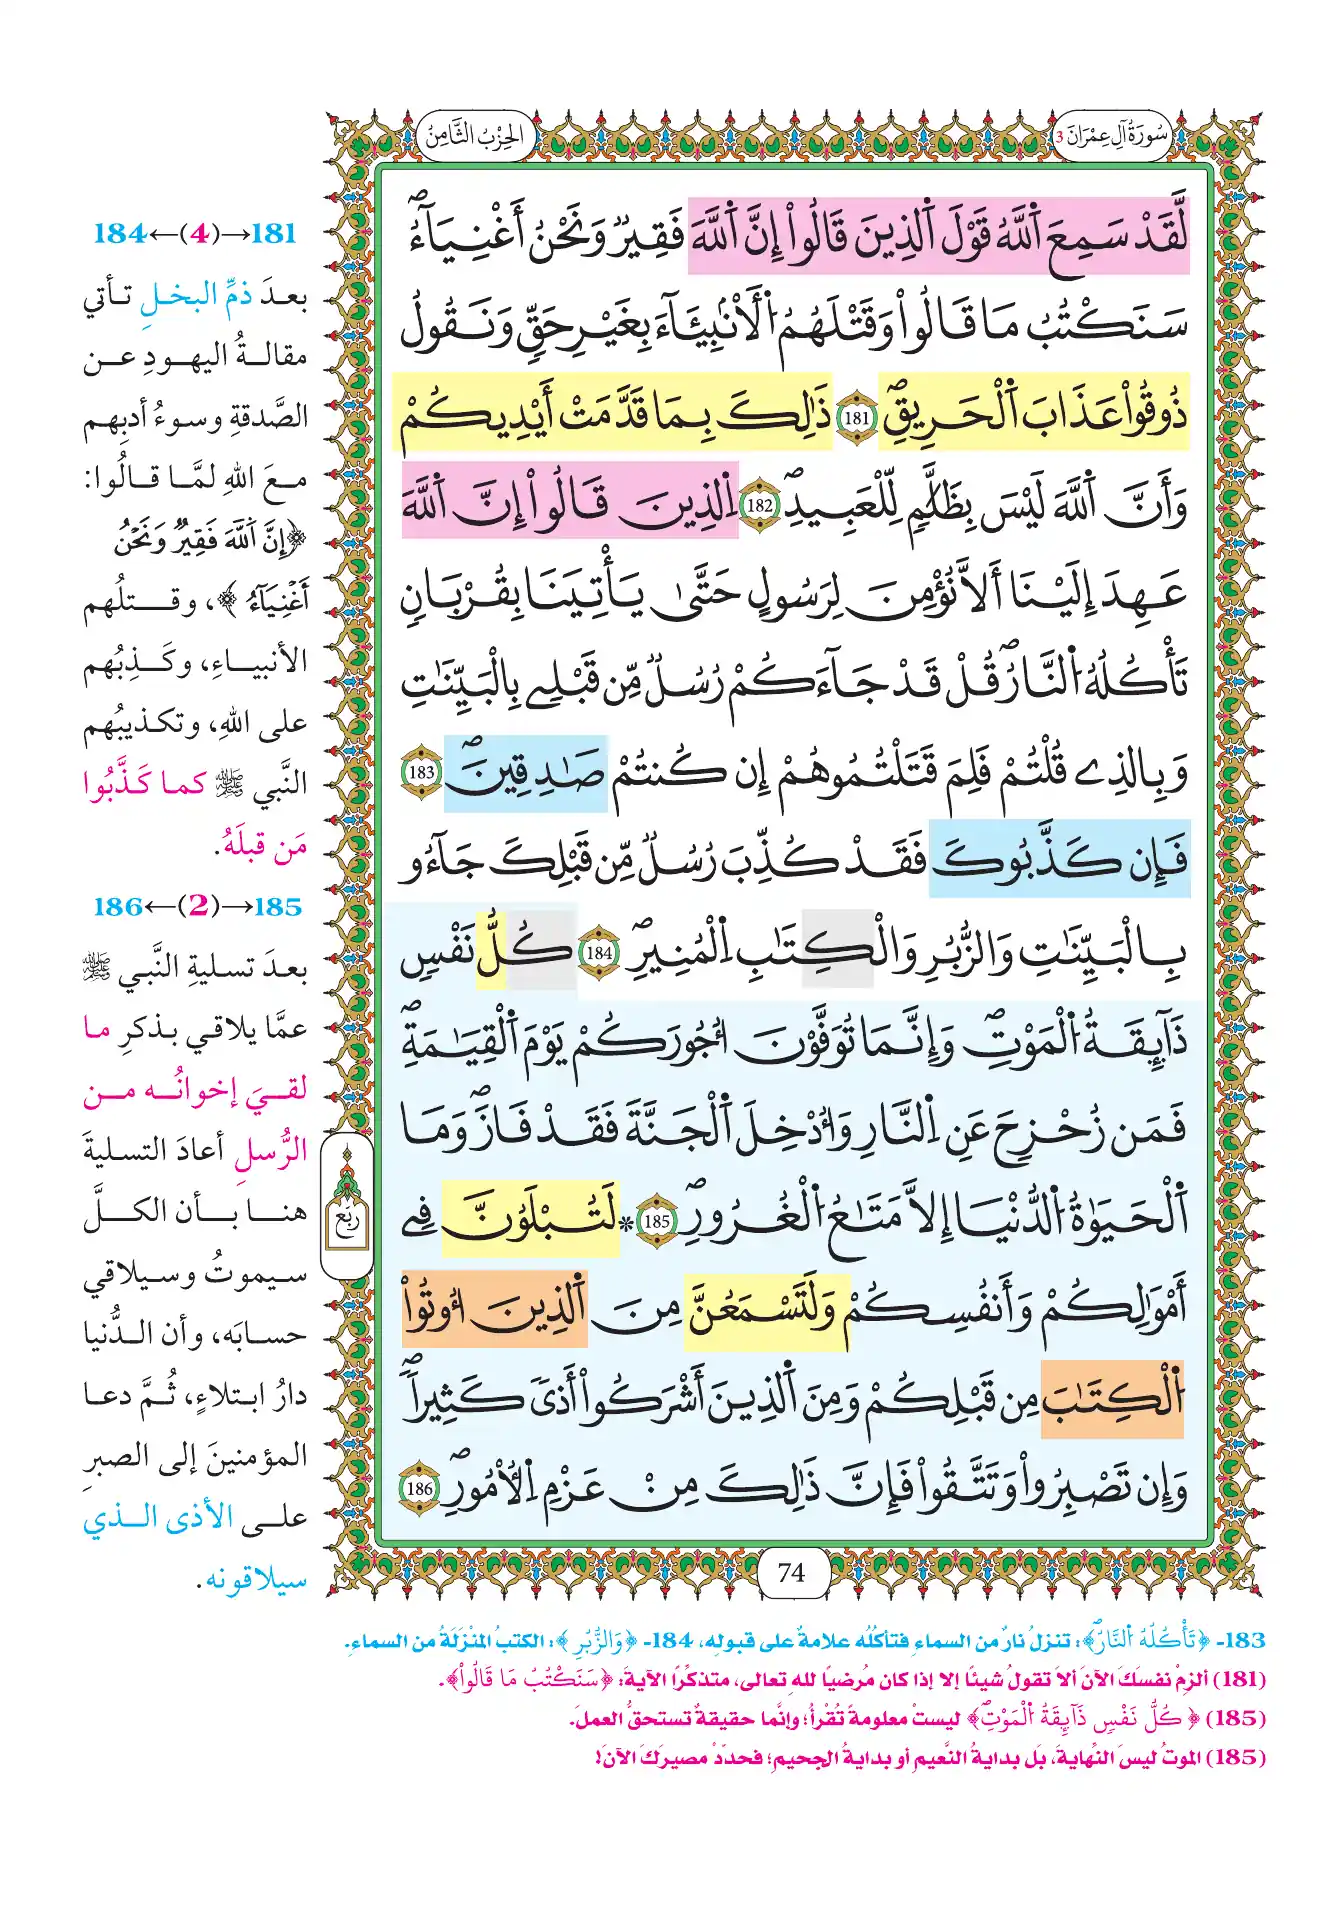 سُورَةُ آلِ عِمْرَانَ 3
الحِزْبُ الثَّامِنُ
لَّقَدْ سَمِعَ اَ۬للَّهُ قَوْلَ اَ۬لذِينَ قَالُوٓاْ إِنَّ اَ۬للَّهَ فَقِيرٞ وَنَحْنُ أَغْنِيَآءُۖ
سَنَكْتُبُ مَا قَالُواْ وَقَتْلَهُمُ اُ۬لْأَنۢبِيَآءَ بِغَيْرِ حَقّٖ وَنَقُولُ
ذُوقُواْ عَذَابَ اَ۬لْحَرِيقِۖ 181 ذَٰلِكَ بِمَا قَدَّمَتْ أَيْدِيكُمْ
وَأَنَّ اَ۬للَّهَ لَيْسَ بِظَلَّٰمٖ لِّلْعَبِيدِۖ 182 اِ۬لذِينَ قَالُوٓاْ إِنَّ اَ۬للَّهَ
عَهِدَ إِلَيْنَآ أَلَّا نُؤْمِنَ لِرَسُولٍ حَتَّىٰ يَأْتِيَنَا بِقُرْبَانٖ
تَأْكُلُهُ اُ۬لنَّارُۖ قُلْ قَدْ جَآءَكُمْ رُسُلٞ مِّن قَبْلِے بِالْبَيِّنَٰتِ
وَبِالذِے قُلْتُمْ فَلِمَ قَتَلْتُمُوهُمْ إِن كُنتُمْ صَٰدِقِينَۖ 183
فَإِن كَذَّبُوكَ فَقَدْ كُذِّبَ رُسُلٞ مِّن قَبْلِكَ جَآءُو
بِالْبَيِّنَٰتِ وَالزُّبُرِ وَالْكِتَٰبِ اِ۬لْمُنِيرِۖ 184 كُلُّ نَفْسٖ
ذَآئِقَةُ اُ۬لْمَوْتِۖ وَإِنَّمَا تُوَفَّوْنَ أُجُورَكُمْ يَوْمَ اَ۬لْقِيَٰمَةِۖ
فَمَن زُحْزِحَ عَنِ اِ۬لنَّارِ وَأُدْخِلَ اَ۬لْجَنَّةَ فَقَدْ فَازَۖ وَمَا
اَ۬لْحَيَوٰةُ اُ۬لدُّنْيَآ إِلَّا مَتَٰعُ اُ۬لْغُرُورِۖ 185 * لَتُبْلَوُنَّ فِےٓ
أَمْوَٰلِكُمْ وَأَنفُسِكُمْ وَلَتَسْمَعُنَّ مِنَ اَ۬لذِينَ أُوتُواْ
اُ۬لْكِتَٰبَ مِن قَبْلِكُمْ وَمِنَ اَ۬لذِينَ أَشْرَكُوٓاْ أَذىٗ كَثِيراٗۖ
وَإِن تَصْبِرُواْ وَتَتَّقُواْ فَإِنَّ ذَٰلِكَ مِنْ عَزْمِ اِ۬لْأُمُورِۖ 186
ربع
74
181→(4)←184
بعدَ ذمِّ البخلِ تأتي
مقالةُ اليهودِ عن
الصَّدقةِ وسوءُ أدبِهم
معَ اللهِ لمَّا قالُوا:
﴿إِنَّ اَ۬للَّهَ فَقِيرٞ وَنَحْنُ
أَغْنِيَآءُ﴾، وقتلُهم
الأنبياءِ، وكَذِبُهم
على اللهِ، وتكذيبُهم
النَّبي ﷺ كما كَذَّبُوا
مَن قبلَهُ.
185→(2)←186
بعدَ تسليةِ النَّبي ﷺ
عمَّا يلاقي بذكرِ ما
لقيَ إخوانُه من
الرُّسلِ أعادَ التسليةَ
هنا بأن الكلَّ
سيموتُ وسيلاقي
حسابَه، وأن الدُّنيا
دارُ ابتلاءٍ، ثُمَّ دعا
المؤمنينَ إلى الصبرِ
على الأذى الذي
سيلاقونه.
183- ﴿تَأْكُلُهُ اُ۬لنَّارُۖ﴾: تنزلُ نارٌ من السماءِ فتأكلُه علامةً على قبولِه، 184- ﴿وَالزُّبُرِ﴾: الكتبُ المنْزَلةُ من السماءِ.
(181) ألزِمْ نفسَكَ الآنَ ألاَ تقولُ شيئًا إلا إذا كان مُرضيًا للهِ تعالى، متذكِّرًا الآيةَ: ﴿سَنَكْتُبُ مَا قَالُواْ﴾.
(185) ﴿كُلُّ نَفْسٖ ذَآئِقَةُ اُ۬لْمَوْتِۖ﴾ ليستْ معلومةً تُقْرأُ؛ وإنَّما حقيقةٌ تستحقُّ العملَ.
(185) الموتُ ليسَ النِّهايةَ، بَل بدايةُ النَّعيمِ أو بدايةُ الجحيمِ؛ فحدِّدْ مصيرَكَ الآنَ!